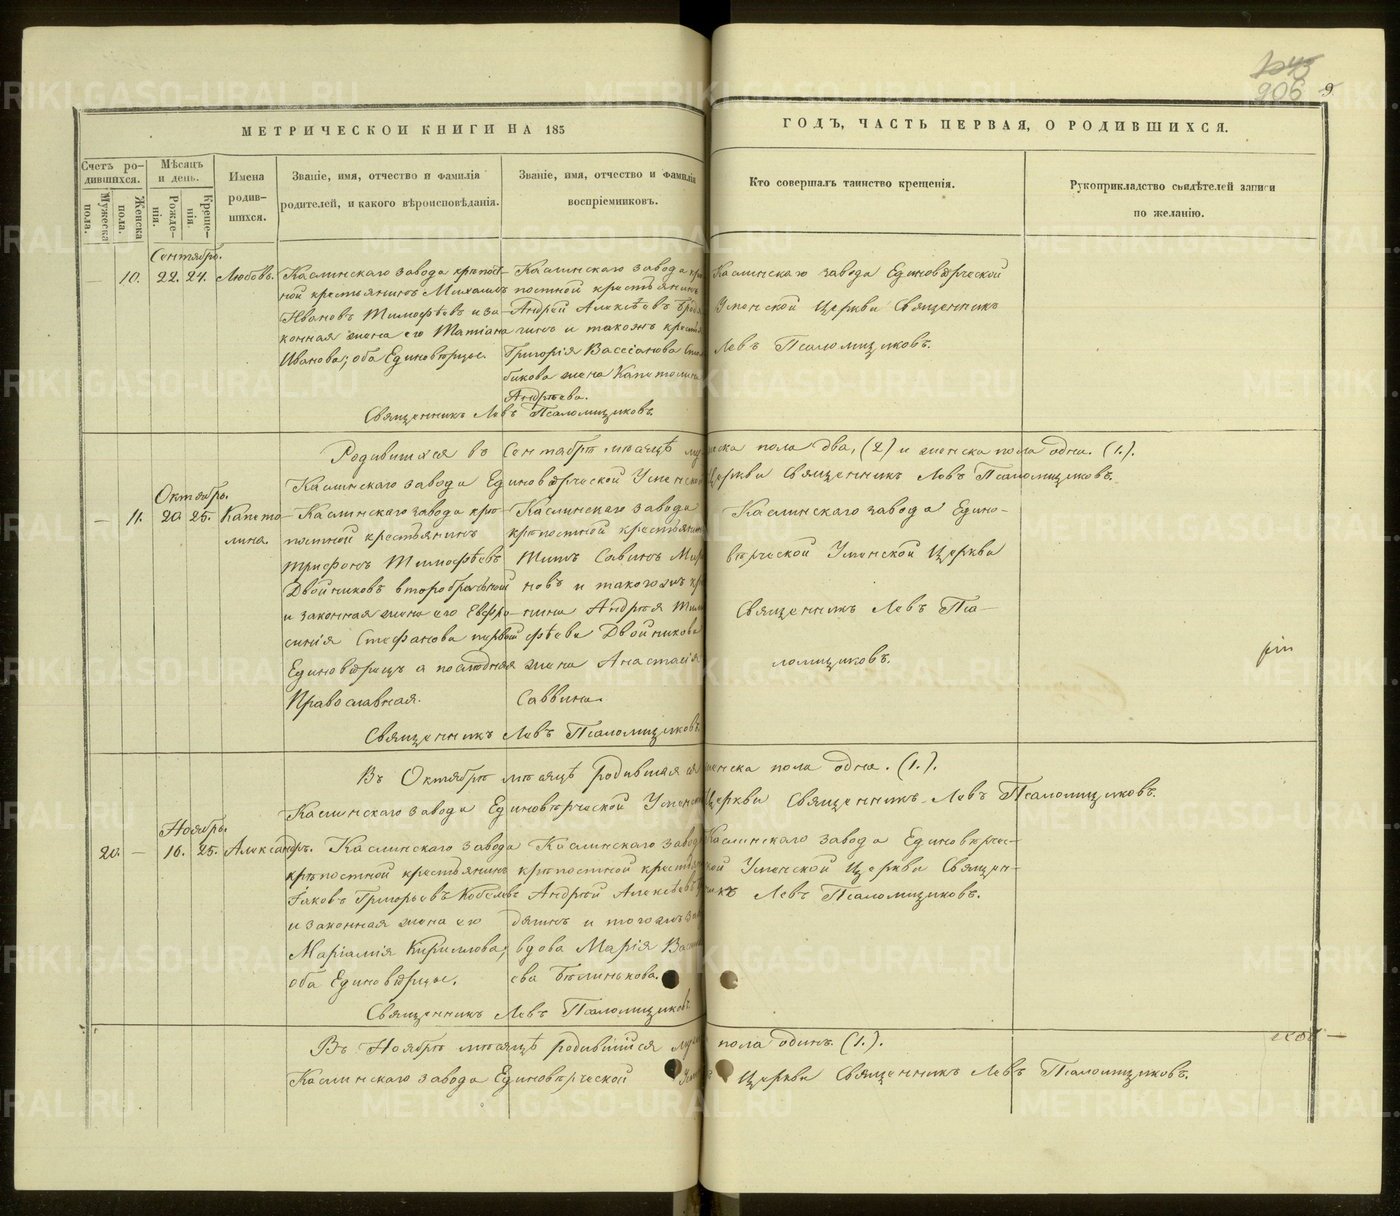 1243
206
9
МЕТРИЧЕСКОЙ КНИГИ НА 185
ГОДЪ, ЧАСТЬ ПЕРВАЯ, О РОДИВШИХСЯ.
Счетъ родившихся.
Мужеска пола.
Женска пола.
Мѣсяцъ и день.
Рожденія.
Крещенія.
Имена родившихся.
Званіе, имя, отчество и фамилія родителей, и какого вѣроисповѣданія.
Званіе, имя, отчество и фамилія воспріемниковъ.
Кто совершалъ таинство крещенія.
Рукоприкладство свидѣтелей записи по желанію.
Сентябрь.
— 10. 22. 24. Любовь.
Каслинскаго завода крѣпост-
ной крестьянинъ Михаилъ
Ивановъ Тимофѣевъ и за-
конная жена его Татіана
Иванова; оба Единовѣрцы.
Каслинскаго завода крѣ
постной крестьянинъ
Андрей Алексѣевъ
гинъ и тогожъ
Григорія Вассіанова
бикова жена Капитолина
Андрѣева.
Каслинскаго завода Единовѣрческой
Успенской Церкви Священникъ
Левъ Псаломщиковъ.
Священникъ Левъ Псаломщиковъ.
Родившихся въ Сентябрѣ мѣсяцѣ му жеска пола два, (2) и женска пола одна. (1.).
Каслинскаго завода Единовѣрческой Успенской Церкви Священникъ Левъ Псаломщиковъ.
Октябрь.
— 11. 20. 25. Капито-
лина.
Каслинскаго завода крѣ-
постной крестьянинъ
Трифонъ Тимофѣевъ
Двойниковъ второбрачной
и законная жена его Евфро-
синія Стефанова первой
Единовѣрецъ а послѣдняя
Православная.
Каслинскаго завода
крѣпостной крестьянинъ
Титъ Савинъ
новъ и такогожъ
Андрея Тимо
фѣева Двойникова
жена Анастасія
Саввина.
Каслинскаго завода Едино-
вѣрческой Успенской Церкви
Священникъ Левъ Пса-
ломщиковъ.
Священникъ Левъ Псаломщиковъ.
Въ Октябрѣ мѣсяцѣ родившаяся женска пола одна. (1.).
Каслинскаго завода Единовѣрческой Успенской Церкви Священникъ Левъ Псаломщиковъ.
Ноябрь.
20. — 16. 25. Александръ.
Каслинскаго завода
крѣпостной крестьянинъ
Іаковъ Григорьевъ Кобелевъ
и законная жена его
Маріамія Кириллова;
оба Единовѣрцы.
Каслинскаго завода
крѣпостной крестьянинъ
Андрей Алексѣевъ
дягинъ и тогожъ завода
вдова Марія Василь
ева Бѣлинькова.
Каслинскаго завода Единовѣрчес-
кой Успенской Церкви Священ-
никъ Левъ Псаломщиковъ.
Священникъ Левъ Псаломщиковъ.
Въ Ноябрѣ мѣсяцѣ родившійся муж пола одинъ. (1.).
Каслинскаго завода Единовѣрческой Церкви Священникъ Левъ Псаломщиковъ.
METRIKI.GASO-URAL.RU